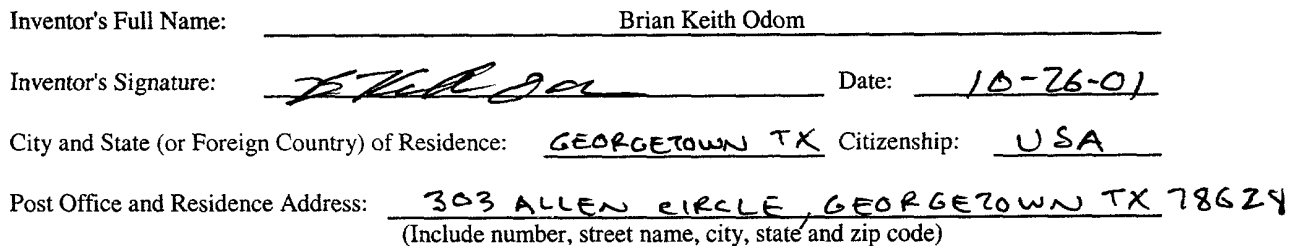 Inventor's Full Name: Brian Keith Odom
Inventor's Signature: Date: 10-26-01
City and State (or Foreign Country) of Residence: GEORGETOWN TX Citizenship: USA
Post Office and Residence Address: 303 ALLEN CIRCLE, GEORGETOWN TX 78628
(Include number, street name, city, state and zip code)